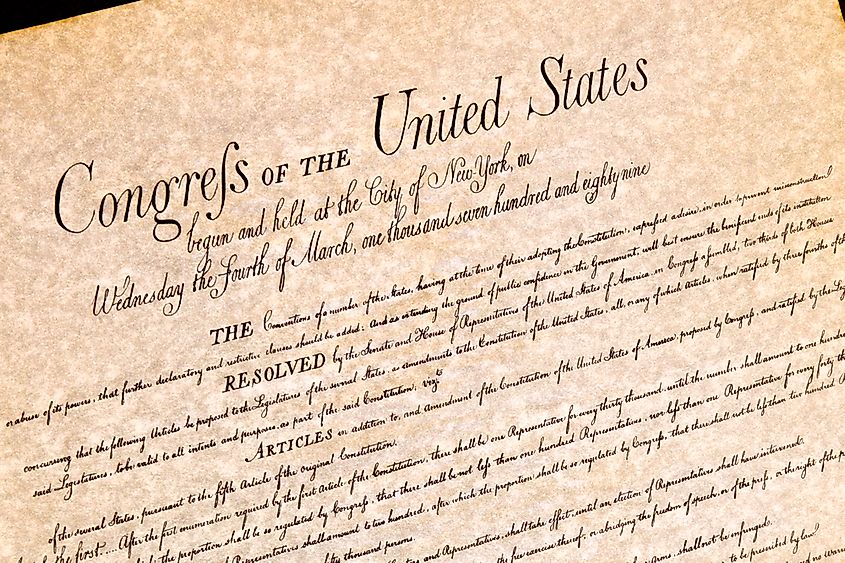 Congreſs OF THE United States
begun and held at the City of New-York, on
Wednesday the Fourth of March, one thousand seven hundred and eighty nine
THE Conventions of a number of the States, having at the time of their adopting the Constitution, expreſsed a desire, in order to prevent misconstruction
or abuse of its powers, that further declaratory and restrictive clauses should be added: And as extending the ground of public confidence in the Government, will best ensure the beneficent ends of its institution
RESOLVED by the Senate and House of Representatives of the United States of America, in Congreſs aſsembled, two thirds of both Houses
concurring that the following Articles be proposed to the Legislatures of the several States, as amendments to the Constitution of the United States, all, or any of which Articles, when ratified by three fourths of the
said Legislatures, to be valid to all intents and purposes, as part of the said Constitution; vizt
ARTICLES in addition to, and Amendment of the Constitution of the United States of America, proposed by Congreſs, and ratified by the Leg
of the several States, pursuant to the fifth Article of the original Constitution.
the first.... After the first enumeration required by the first Article of the Constitution, there shall be one Representative for every thirty thousand, until the number shall amount to one hundred
the proportion shall be so regulated by Congreſs, that there shall be not leſs than one hundred Representatives, nor leſs than one Representative for every forty th
Representatives shall amount to two hundred, after which the proportion shall be so regulated by Congreſs, that there shall not be leſs than two hundred
fifty thousand persons.
and Representatives, shall take effect, until an election of Representatives shall have intervened.
the free exercise thereof; or abridging the freedom of speech, or of the preſs, or the right of the p
Arms, shall not be infringed.
to be prescribed by law.